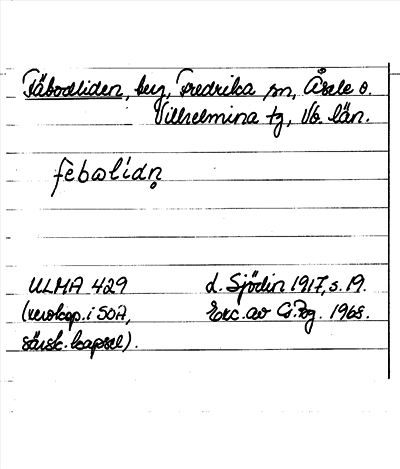 Fäbodliden, berg, Fredrika sn, Åsele o.
Vilhelmina tg, Vb. län.
febωlidn̥
ULMA 429
(verokop. i SOA,
särsk. kapsel).
d. Sjödin 1917, s. 19.
Exc. av G. Pg. 1968.